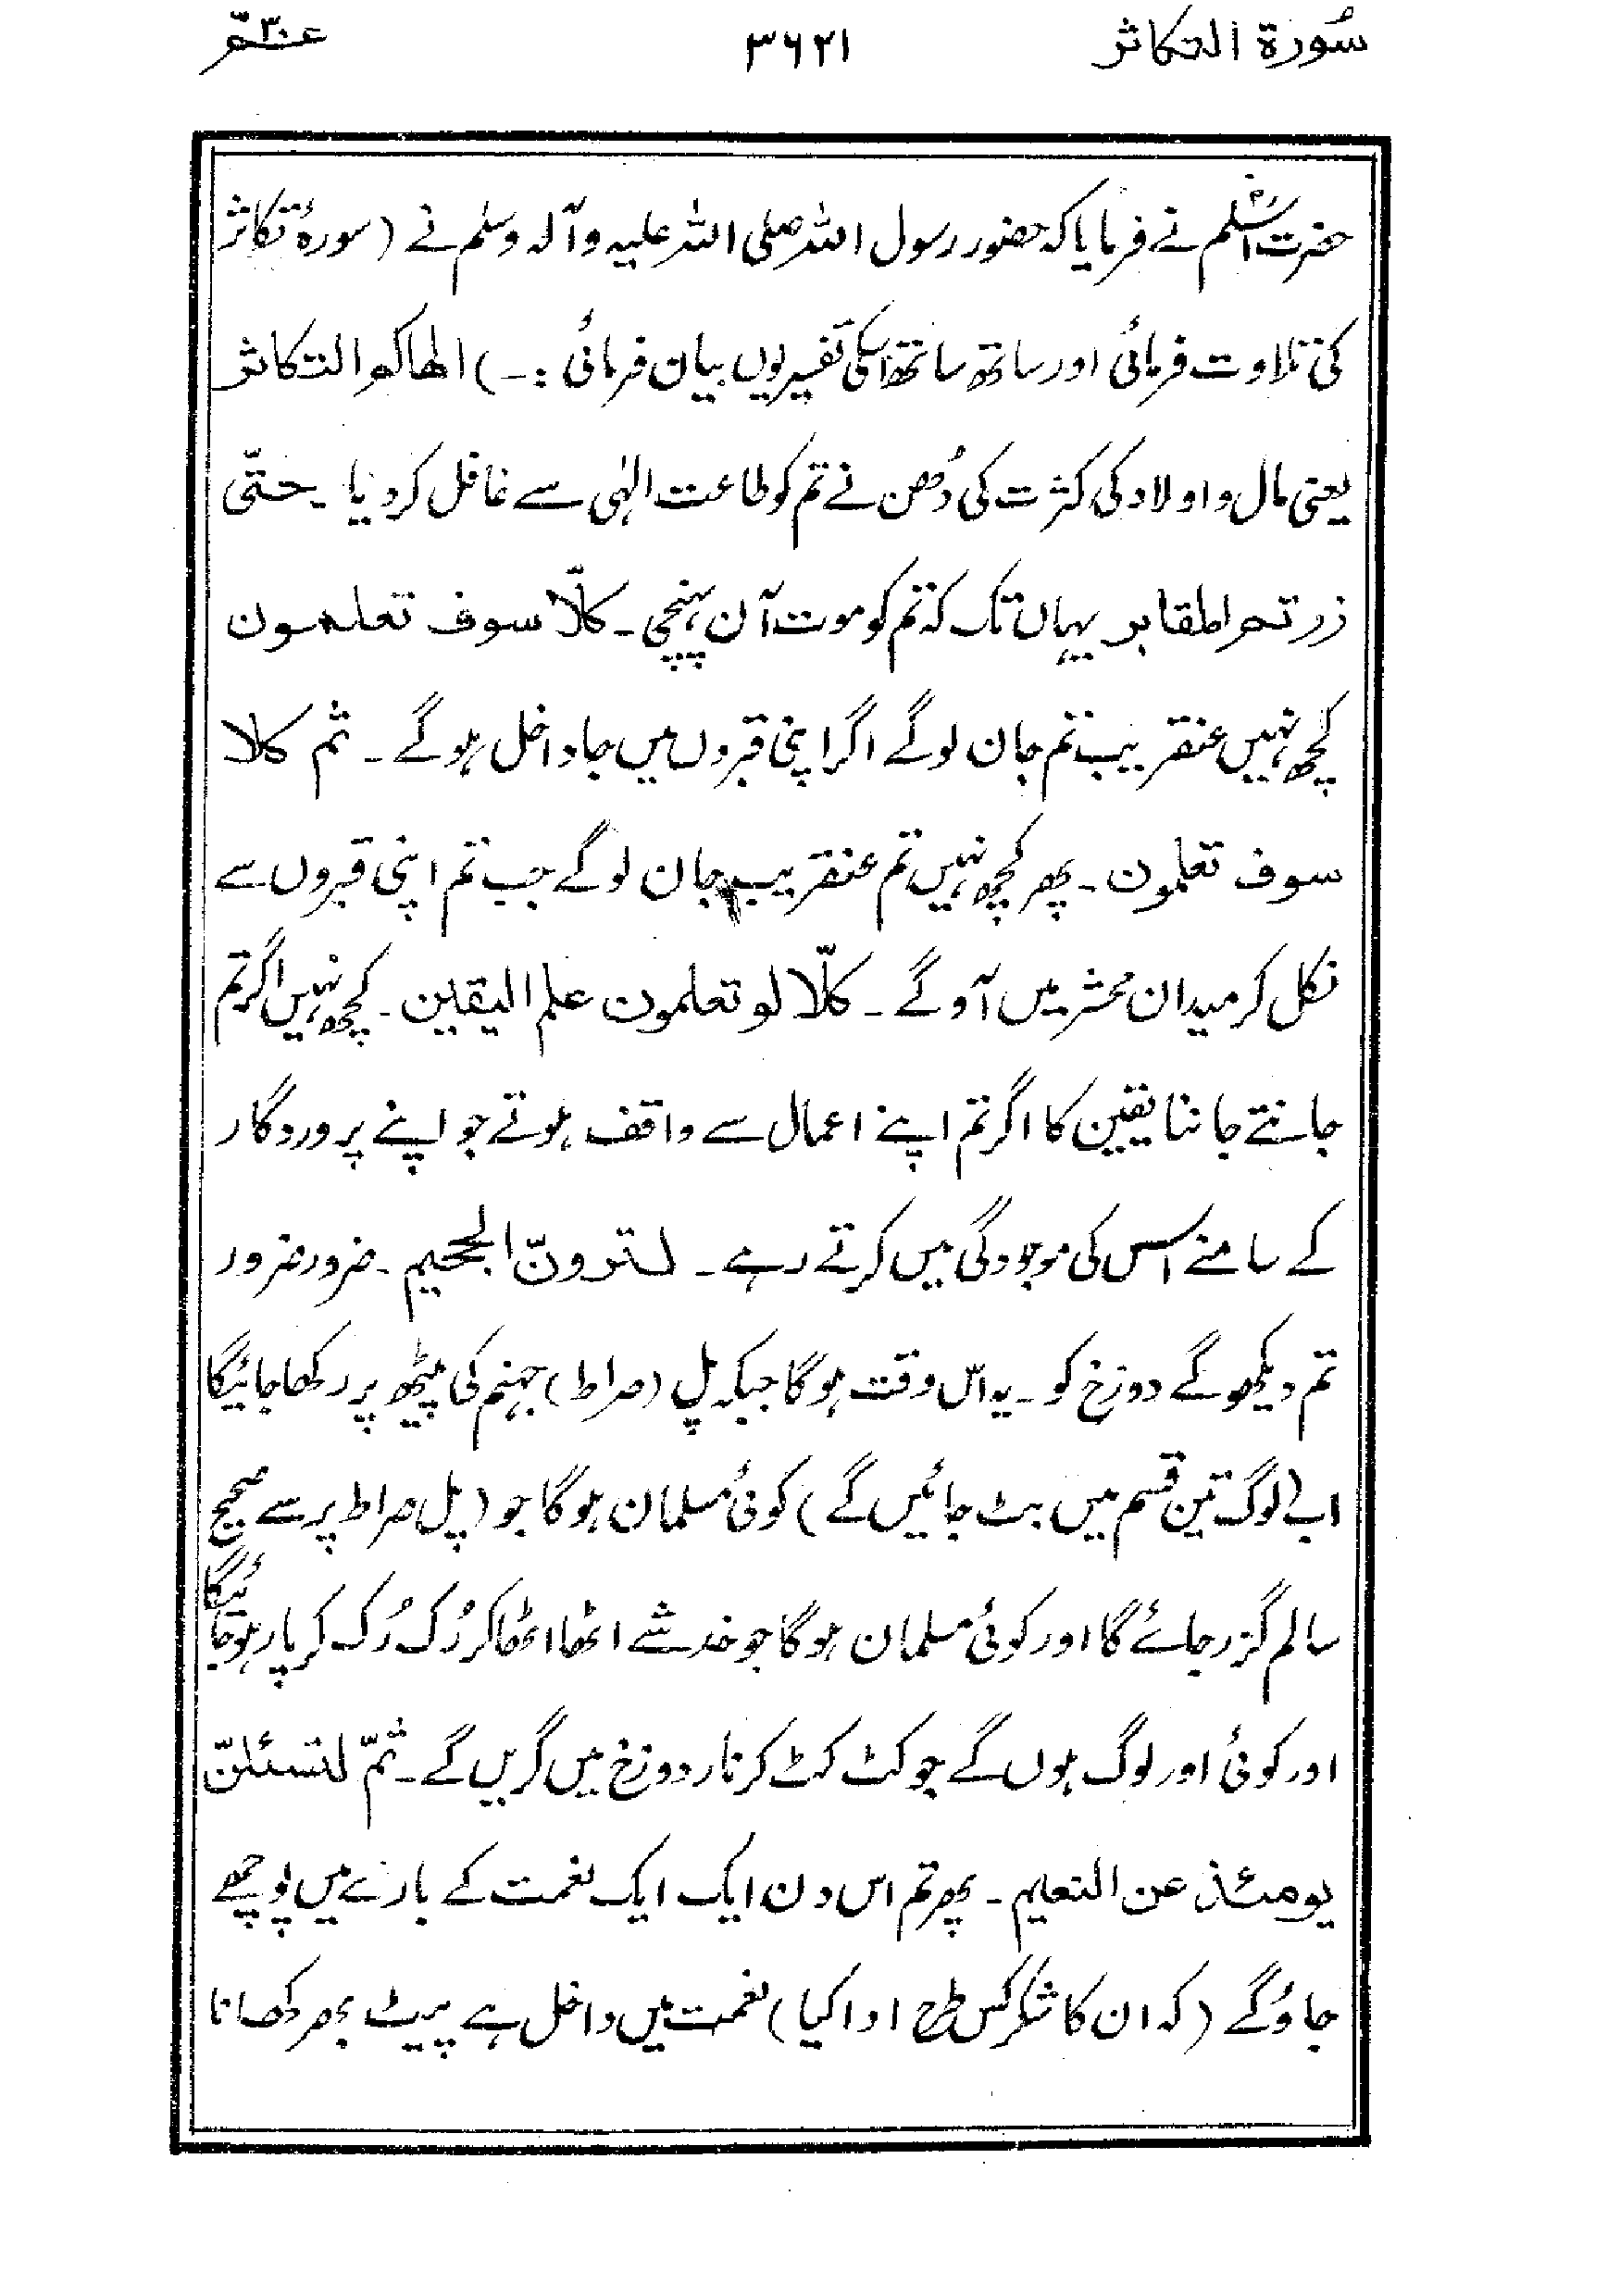 سُورة التکاثر ۳۶۲۱ عمّ ۳۰
حضرت اسلمؓ نے فرمایا کہ حضور رسول اللہ صلی اللہ علیہ وآلہ وسلم نے (سورۂ تکاثر
کی تلاوت فرمائی اور ساتھ ساتھ اسکی تفسیر یوں بیان فرمائی :ـ) الھاکم التکاثر
یعنی مال و اولاد کی کثرت کی دُھن نے تم کو طاعت الٰہی سے غافل کر دیا ۔ حتّی
زرتم المقابر یہاں تک کہ تم کو موت آن پہنچی ۔ کلّا سوف تعلمون
کچھ نہیں عنقریب تم جان لوگے اگر اپنی قبروں میں جا داخل ہوگے ۔ ثم کلا
سوف تعلمون ۔ پھر کچھ نہیں تم عنقریب جان لوگے جب تم اپنی قبروں سے
نکل کر میدان محشر میں آوگے ۔ کلّا لو تعلمون علم الیقین ۔ کچھ نہیں اگر تم
جانتے جاننا یقین کا اگر تم اپنے اعمال سے واقف ہوتے جو اپنے پروردگار
کے سامنے اسس کی موجودگی میں کرتے رہے ۔ لترونّ الجحیم ۔ ضرور ضرور
تم دیکھوگے دوزخ کو ۔ یہ اس وقت ہوگا جبکہ پل (صراط) جہنم کی پیٹھ پر رکھا جائیگا
اب (لوگ تین قسم میں بٹ جائیں گے) کوئی مسلمان ہوگا جو (پل صراط پر سے صحیح
سالم گزر جائے گا اور کوئی مسلمان ہوگا جو خدشے اٹھا اٹھا کر رُک رُک کر پار ہو جائیگا
اور کوئی اور لوگ ہوں گے جو کٹ کٹ کر نار دوزخ میں گریں گے ۔ ثمّ لتسئلنّ
یومئذ عن النعیم ۔ پھر تم اس دن ایک ایک نعمت کے بارے میں پوچھے
جاؤگے (کہ ان کا شکر کس طرح ادا کیا) نعمت میں داخل ہے پیٹ بھر کھانا